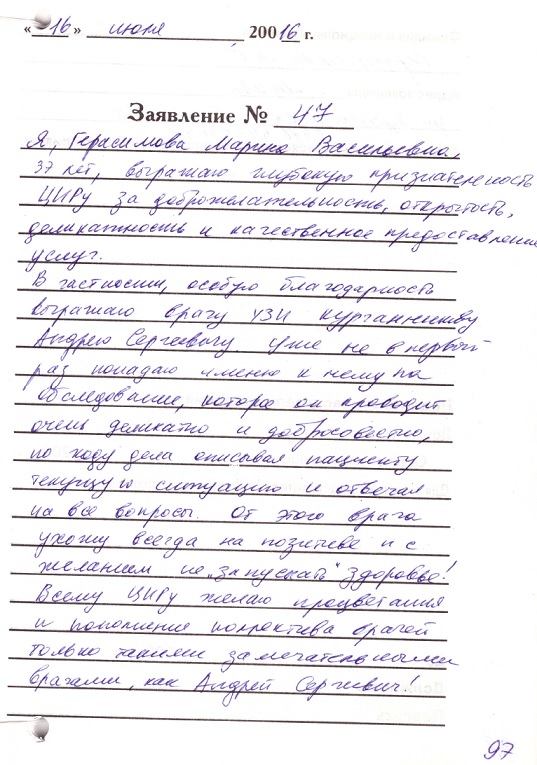 «16» июня 20016 г.
Заявление № 47
Я, Герасимова Марина Васильевна,
37 лет, выражаю глубокую признательность
ЦИРу за доброжелательность, открытость,
деликатность и качественное предоставление
услуг.
В частности, особую благодарность
выражаю врачу УЗИ Курганникову
Андрею Сергеевичу уже не в первый
раз попадаю именно к нему на
обследование, которое он проводит
очень деликатно и добросовестно,
по ходу дела описывая пациенту
текущую ситуацию и отвечая
на все вопросы. От этого врача
ухожу всегда на позитиве и с
желанием не „запускать" здоровье!
Всему ЦИРу желаю процветания
и пополнение коллектива врачей
только такими замечательными
врачами, как Андрей Сергеевич!
97